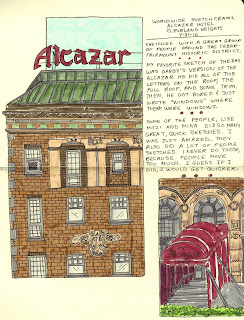 Alcazar
WORLDWIDE SKETCHCRAWL
ALCAZAR HOTEL
CLEVELAND HEIGHTS
SKETCHED WITH A GREAT GROUP
OF PEOPLE AROUND THE CEDAR-
FAIRMOUNT HISTORIC DISTRICT.
MY FAVORITE SKETCH OF THE DAY
WAS DARBY'S VERSION OF THE
ALCAZAR. HE DID ALL OF THE
LETTERS ON THE ROOF, THE
FULL ROOF, AND SOME TRIM,
THEN, HE GOT BORED & JUST
WROTE "WINDOWS" WHERE
THERE WERE WINDOWS.
SOME OF THE PEOPLE, LIKE
MITZI AND MINA DID SO MANY
GREAT, QUICK SKETCHES. I
WAS JUST AMAZED. THEY
ALSO DID A LOT OF PEOPLE
SKETCHES. I NEVER DO THEM
BECAUSE PEOPLE MOVE
TOO MUCH. I GUESS IF I
DID, I WOULD GET QUICKER.
Alcazar